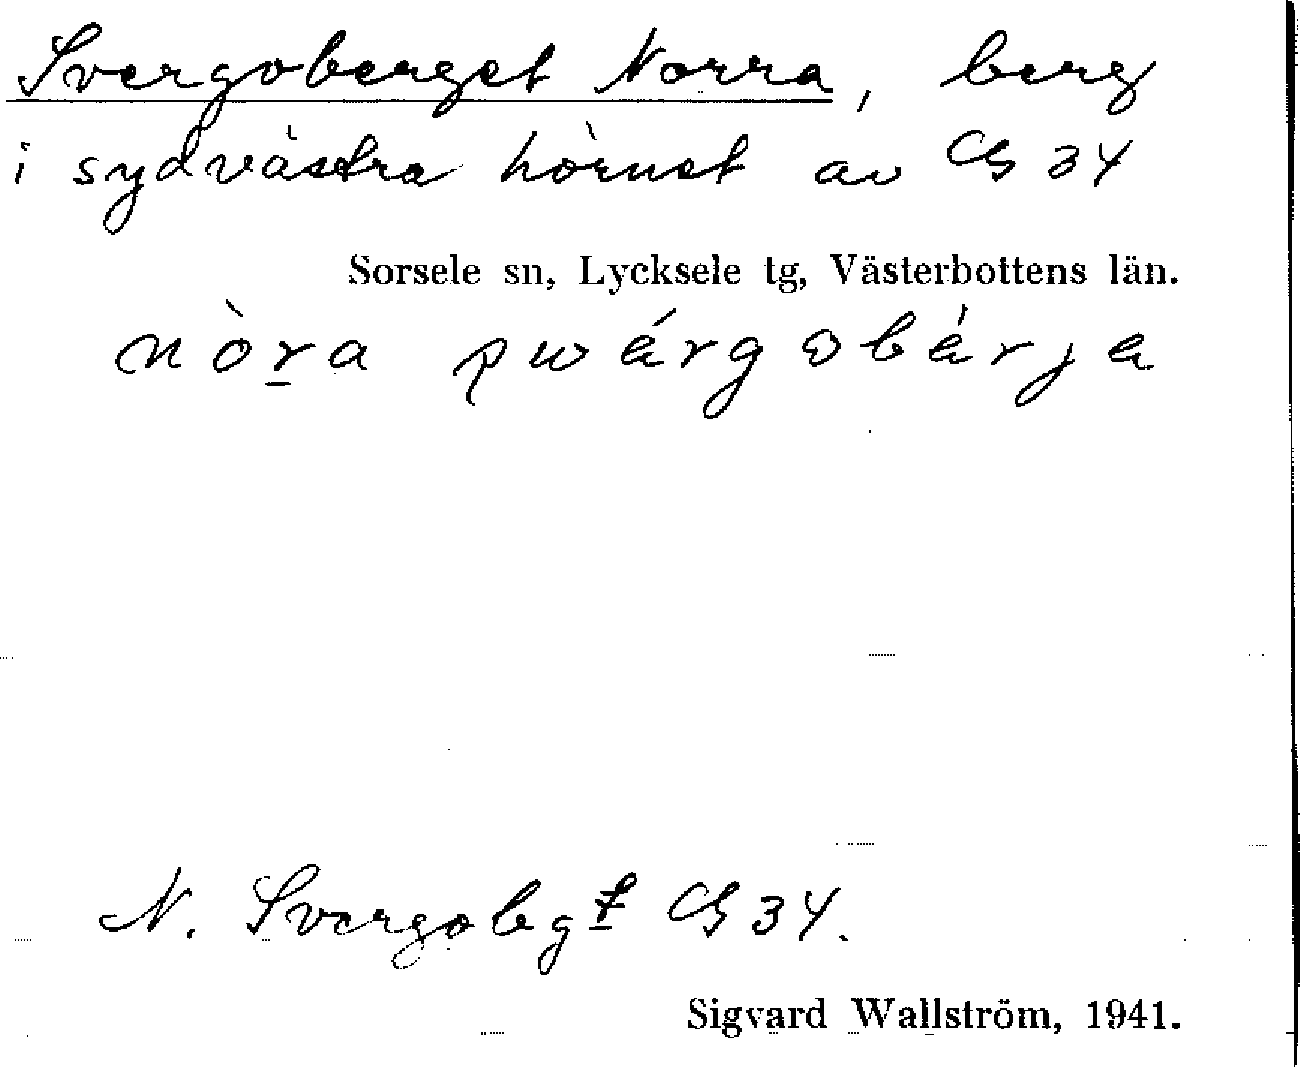 Svergoberget Norra, berg
i sydvästra hörnet av CG 34
Sorsele sn, Lycksele tg, Västerbottens län.
nòr̲a swérgobérja
N. Svergobgt CG 34.
Sigvard Wallström, 1941.